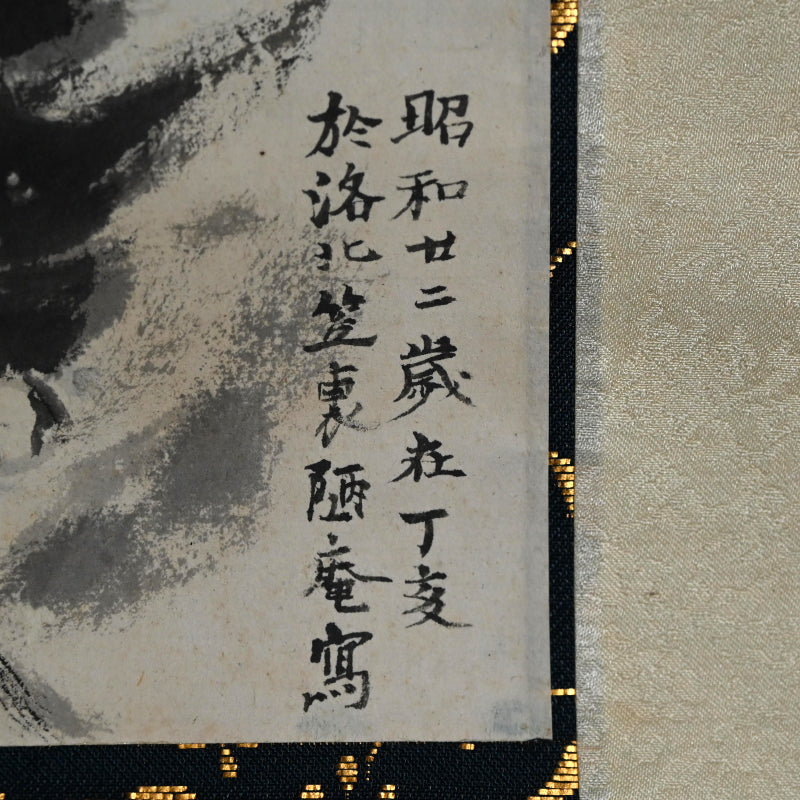 昭和廿二歲在丁亥
於洛北笠裏陋庵寫